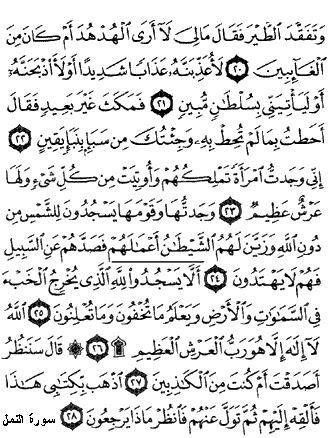 وَتَفَقَّدَ ٱلطَّيْرَ فَقَالَ مَالِىَ لَآ أَرَى ٱلْهُدْهُدَ أَمْ كَانَ مِنَ
ٱلْغَآئِبِينَ ۝٢٠ لَأُعَذِّبَنَّهُۥ عَذَابًا شَدِيدًا أَوْ لَأَاْذْبَحَنَّهُۥٓ
أَوْ لَيَأْتِيَنِّى بِسُلْطَٰنٍ مُّبِينٍ ۝٢١ فَمَكَثَ غَيْرَ بَعِيدٍ فَقَالَ
أَحَطتُ بِمَا لَمْ تُحِطْ بِهِۦ وَجِئْتُكَ مِن سَبَإٍۭ بِنَبَإٍ يَقِينٍ ۝٢٢
إِنِّى وَجَدتُّ ٱمْرَأَةً تَمْلِكُهُمْ وَأُوتِيَتْ مِن كُلِّ شَىْءٍ وَلَهَا
عَرْشٌ عَظِيمٌ ۝٢٣ وَجَدتُّهَا وَقَوْمَهَا يَسْجُدُونَ لِلشَّمْسِ مِن
دُونِ ٱللَّهِ وَزَيَّنَ لَهُمُ ٱلشَّيْطَٰنُ أَعْمَٰلَهُمْ فَصَدَّهُمْ عَنِ ٱلسَّبِيلِ
فَهُمْ لَا يَهْتَدُونَ ۝٢٤ أَلَّا يَسْجُدُواْ لِلَّهِ ٱلَّذِى يُخْرِجُ ٱلْخَبْءَ
فِى ٱلسَّمَٰوَٰتِ وَٱلْأَرْضِ وَيَعْلَمُ مَا تُخْفُونَ وَمَا تُعْلِنُونَ ۝٢٥ ٱللَّهُ
لَآ إِلَٰهَ إِلَّا هُوَ رَبُّ ٱلْعَرْشِ ٱلْعَظِيمِ ۩ ۝٢٦ ۞ قَالَ سَنَنظُرُ
أَصَدَقْتَ أَمْ كُنتَ مِنَ ٱلْكَٰذِبِينَ ۝٢٧ ٱذْهَب بِّكِتَٰبِى هَٰذَا
فَأَلْقِهْ إِلَيْهِمْ ثُمَّ تَوَلَّ عَنْهُمْ فَٱنظُرْ مَاذَا يَرْجِعُونَ ۝٢٨
سورة النمل